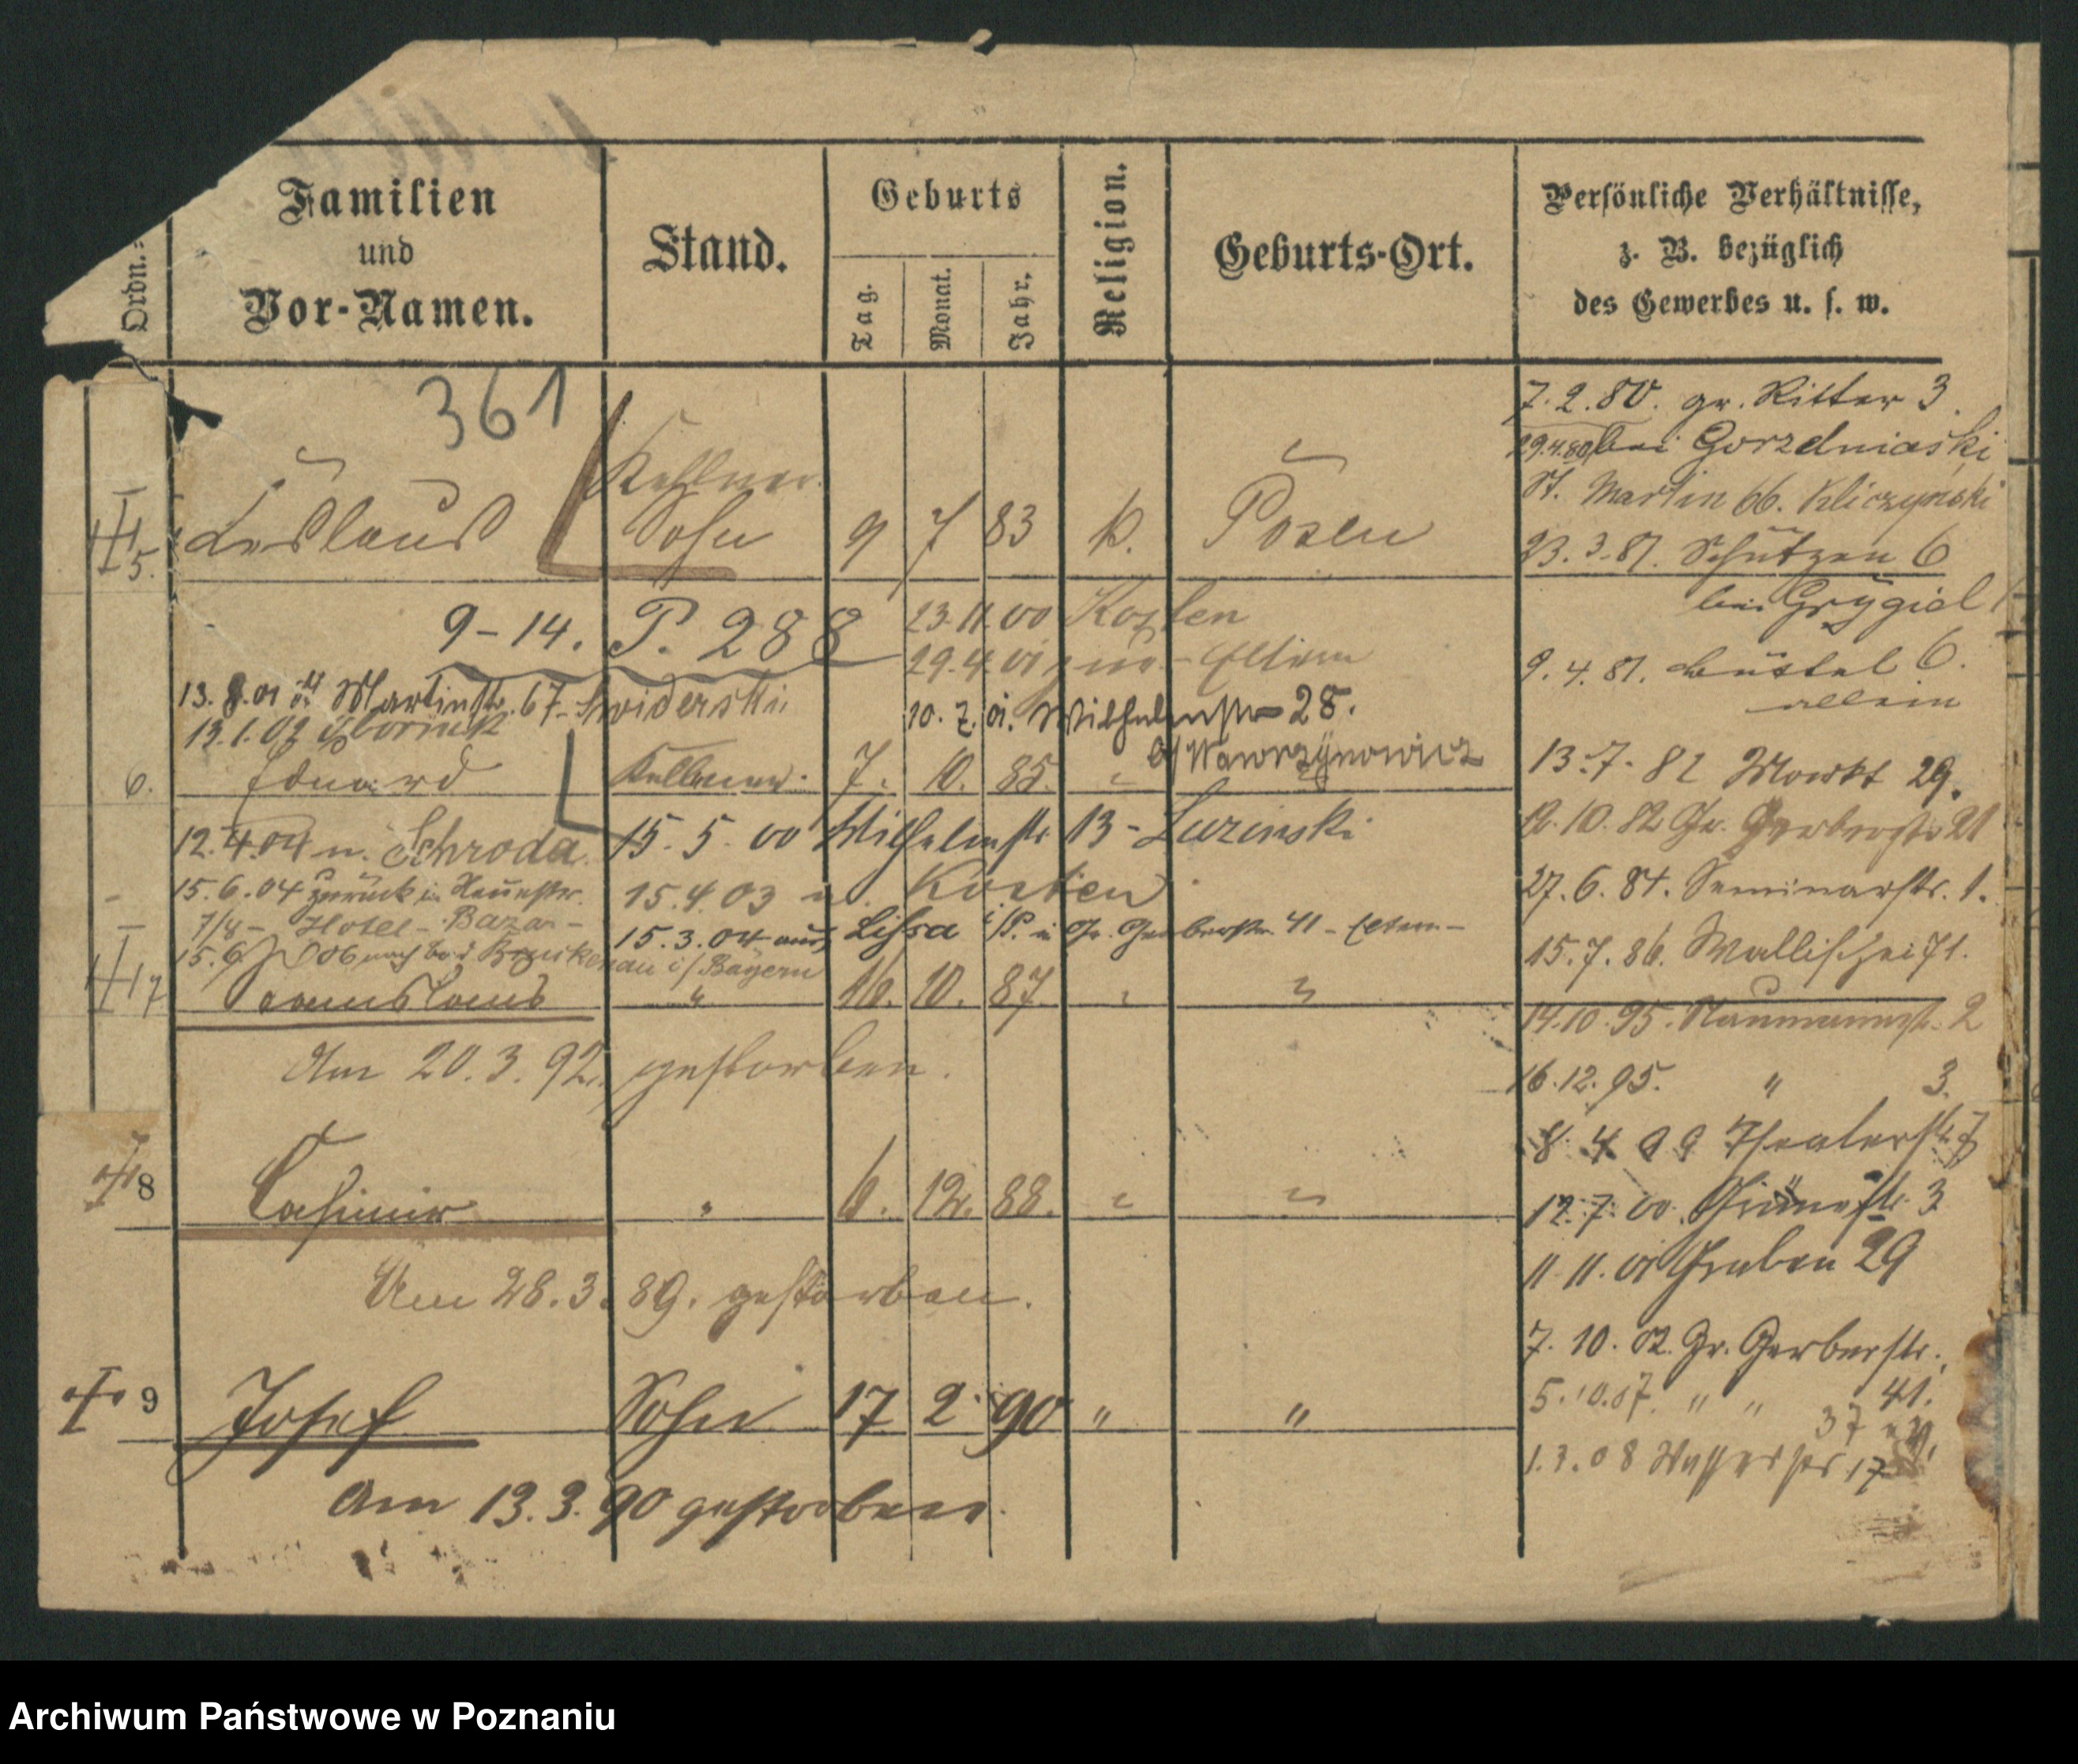 Ordn.=
Familien
und
Vor-Namen.
Stand.
Geburts
Tag.
Monat.
Jahr.
Religion.
Geburts-Ort.
Persönliche Verhältnisse,
z. B. bezüglich
des Gewerbes u. s. w.
361
Kellner.
5. Ladislaus Sohn 9 7 83 k. Posen
9-14. P. 288
23.11.00 Kosten
29.4.01 zur. - Eltern
13.8.01 St Martinstr. 67 - Swiderski
10.7.01. Wilhelmstr 28.
b/ Wawrzynowicz
13.1.02
6. Eduard Kellner. 7. 10. 85. "
15.5.00 Wilhelmstr 13 - Luzinski
12.4.04 n. Schroda
15.4.03 n. Kosten
15.6.04 zurück in
7/8 - Hotel - Bazar -
15.3.04 aus Lissa i/P. n Gr. Gerberstr. 41 - Eltern -
15.6.06 nach Bad Brückenau i/Bayern
7 Stanislaus " 16. 10. 87. " "
Am 20.3.92. gestorben.
8 Casimir " 6. 12. 88. " "
Am 28.3.89. gestorben.
9 Josef Sohn 17 2 90 " "
Am 13.3.90 gestorben.
7.2.80. gr. Ritter 3.
29.4.80 bei
St. Martin 66. Kliczynski
23.3.81. Schützen 6
bei Grygiel
9.4.81. Büttel 6.
allein
13.7.82 Markt 29.
12.10.82 Gr. Gerberstr 21
27.6.84. Seminarstr. 1.
15.7.86. Wallischei 71.
14.10.95. Naumannstr. 2
16.12.95. " 3.
8 4 99 Theaterstr 7
12.7.00. 3
11.11.01 Graben 29
7.10.02. Gr. Gerberstr.
41.
5.10.07. " "
37
1.3.08 Wasserstr 17
Archiwum Państwowe w Poznaniu